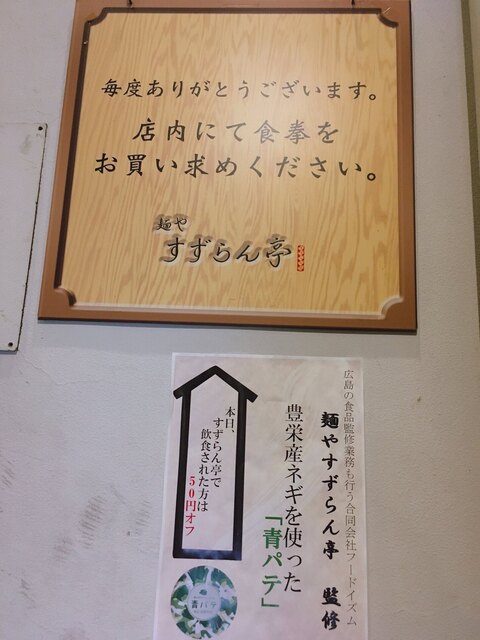 毎度ありがとうございます。
店内にて食拳を
お買い求めください。
麺や
すずらん亭
広島の食品監修業務も行う合同会社フードイズム
麺やすずらん亭 監修
豊栄産ネギを使った
「青パテ」
本日、
すずらん亭で
飲食された方は
50円オフ
青パテ